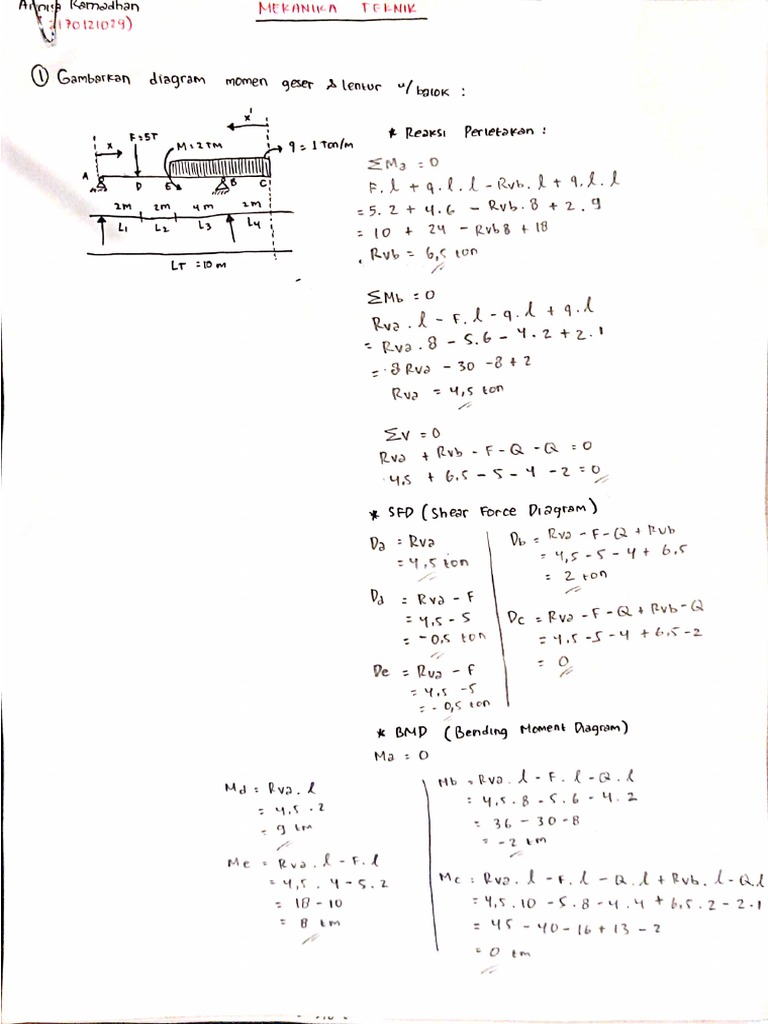 Ramadhan
170121029)
MEKANIKA TEKNIK
① Gambarkan diagram momen geser & lentur u/ balok :
x'
x
F=5T
M=2TM
q = 1 Ton/m
A
D
E
B
C
2m 2m 4m 2m
L1 L2 L3 L4
LT = 10 m
* Reaksi Perletakan :
ΣMa = 0
F. l + q. l. l - Rvb. l + q. l. l
= 5. 2 + 4. 6 - Rvb. 8 + 2. 9
= 10 + 24 - Rvb8 + 18
Rvb = 6,5 ton
ΣMb = 0
Rva . l - F. l - q. l + q. l
= Rva . 8 - 5. 6 - 4. 2 + 2. 1
= 8 Rva - 30 - 8 + 2
Rva = 4,5 ton
ΣV = 0
Rva + Rvb - F - Q - Q = 0
4,5 + 6,5 - 5 - 4 - 2 = 0
* SFD (Shear Force Diagram)
Da = Rva
= 4,5 ton
Dd = Rva - F
= 4,5 - 5
= -0,5 ton
De = Rva - F
= 4,5 - 5
= - 0,5 ton
Db = Rva - F - Q + Rvb
= 4,5 - 5 - 4 + 6,5
= 2 ton
Dc = Rva - F - Q + Rvb - Q
= 4,5 - 5 - 4 + 6,5 - 2
= 0
* BMD (Bending Moment Diagram)
Ma = 0
Md = Rva . l
= 4,5 . 2
= 9 tm
Me = Rva . l - F. l
= 4,5 . 4 - 5. 2
= 18 - 10
= 8 tm
Mb = Rva . l - F. l - Q. l
= 4,5 . 8 - 5. 6 - 4. 2
= 36 - 30 - 8
= -2 tm
Mc = Rva . l - F. l - Q. l + Rvb. l - Q. l
= 4,5. 10 - 5. 8 - 4. 4 + 6,5. 2 - 2. 1
= 45 - 40 - 16 + 13 - 2
= 0 tm